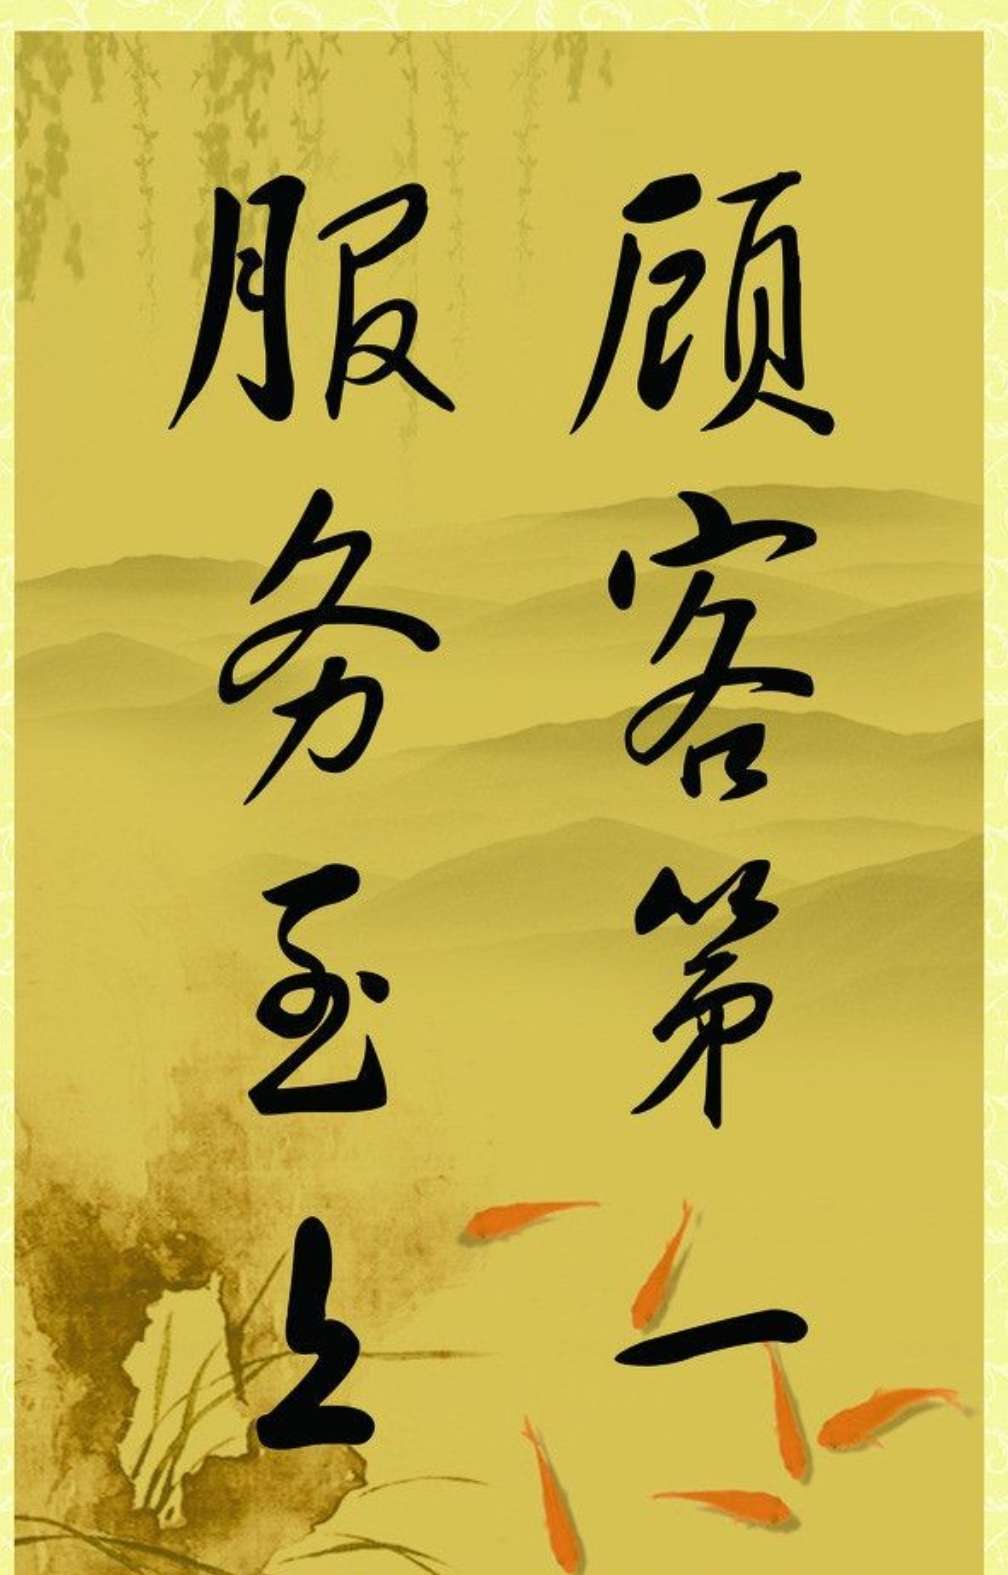 顾客第一
服务至上